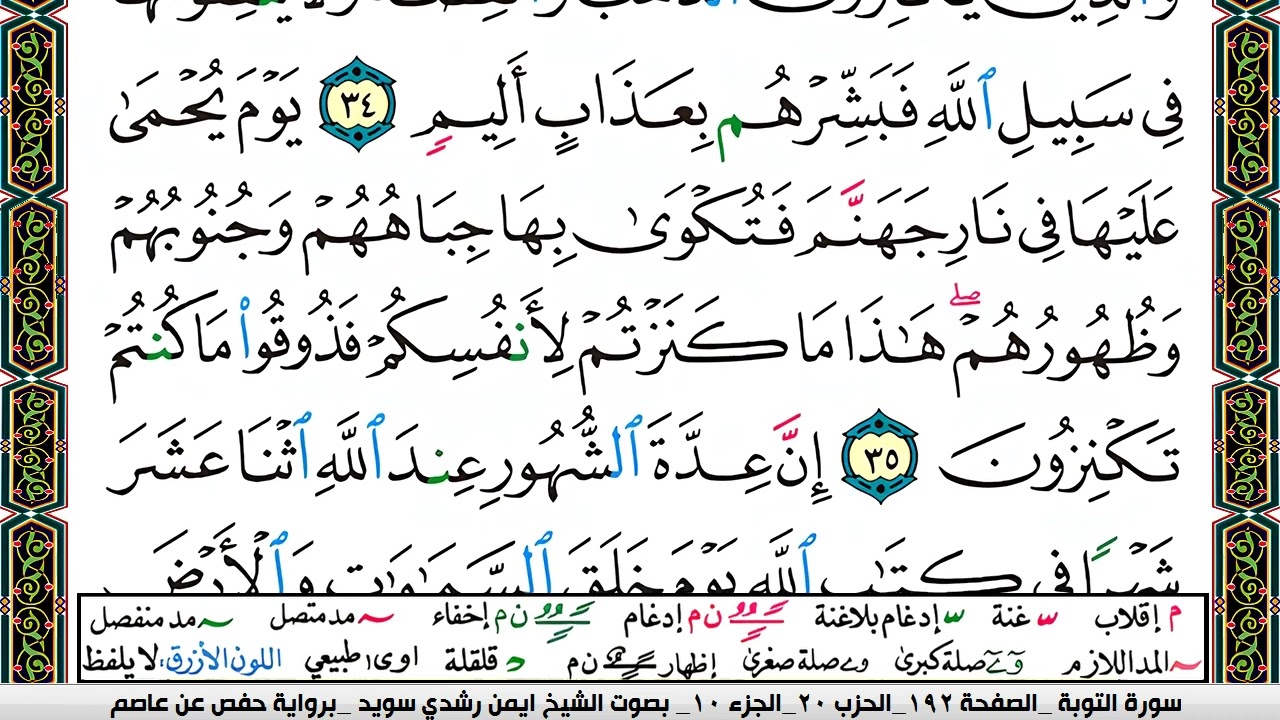 فِى سَبِيلِ ٱللَّهِ فَبَشِّرْهُم بِعَذَابٍ أَلِيمٍ ٣٤ يَوْمَ يُحْمَىٰ
عَلَيْهَا فِى نَارِ جَهَنَّمَ فَتُكْوَىٰ بِهَا جِبَاهُهُمْ وَجُنُوبُهُمْ
وَظُهُورُهُمْ ۖ هَـٰذَا مَا كَنَزْتُمْ لِأَنفُسِكُمْ فَذُوقُوا۟ مَا كُنتُمْ
تَكْنِزُونَ ٣٥ إِنَّ عِدَّةَ ٱلشُّهُورِ عِندَ ٱللَّهِ ٱثْنَا عَشَرَ
شَهْرًا فِى كِتَـٰبِ ٱللَّهِ يَوْمَ خَلَقَ ٱلسَّمَـٰوَٰتِ وَٱلْأَرْضَ
م إقلاب س غنة س إدغام بلاغنة ن م إدغام ن م إخفاء ~ مد متصل ~ مد منفصل
~ المد اللازم و ے صلة كبرى و ے صلة صغرى إظهار ن م د قلقلة ا و ى طبيعي اللون الأزرق: لا يلفظ
سورة التوبة _الصفحة ١٩٢_الحزب ٢٠_الجزء ١٠_ بصوت الشيخ ايمن رشدي سويد _برواية حفص عن عاصم